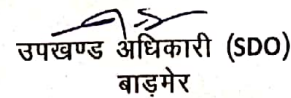 उपखण्ड अधिकारी (SDO)
बाड़मेर